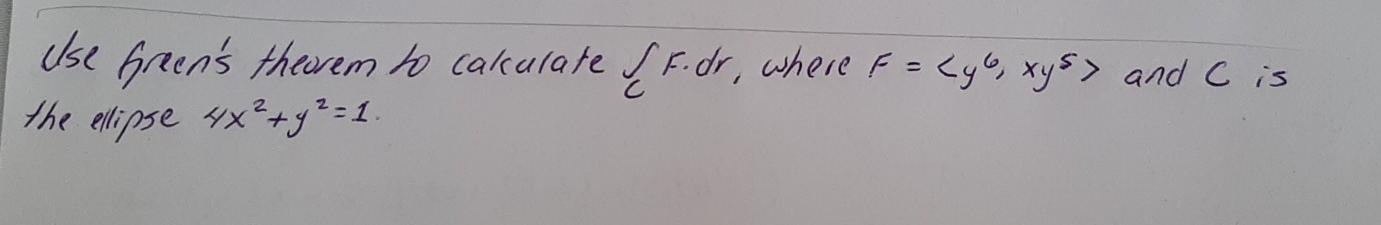 Use Green's theorem to calculate ∫_C F·dr, where F = <y⁶, xy⁵> and C is
the ellipse 4x²+y²=1.